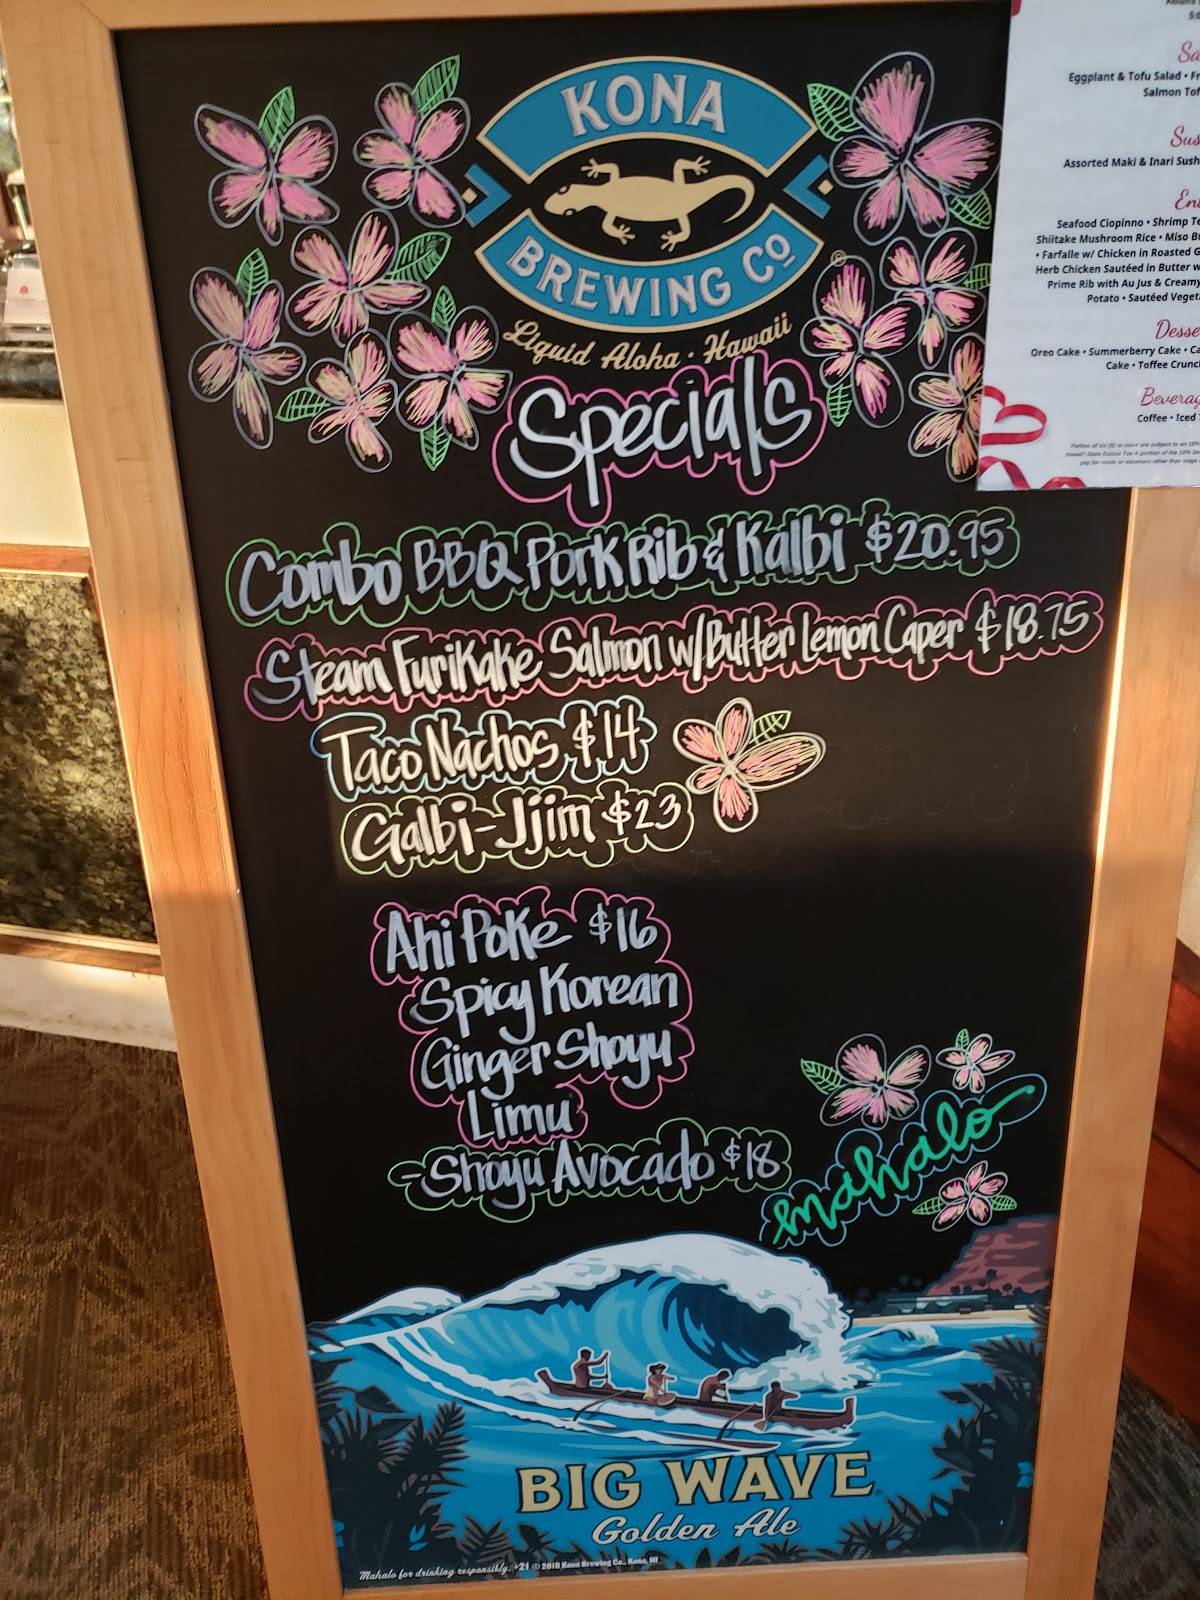 KONA
BREWING CO
®
Liquid Aloha · Hawaii
Specials
Combo BBQ Pork Rib & Kalbi $20.95
Steam Furikake Salmon w/Butter Lemon Caper $18.75
Taco Nachos $14
Galbi-Jjim $23
Ahi Poke $16
Spicy Korean
Ginger Shoyu
Limu
-Shoyu Avocado $18
mahalo
BIG WAVE
Golden Ale
Mahalo for drinking responsibly. +21 © 2018 Kona Brewing Co., Kona, HI
Eggplant & Tofu Salad •
Salmon
Assorted Maki & Inari
Seafood Ciopinno • Shrimp
Shiitake Mushroom Rice • Miso
• Farfalle w/ Chicken in Roasted
Herb Chicken Sautéed in Butter
Prime Rib with Au Jus & Creamy
Potato • Sautéed
Oreo Cake • Summerberry Cake •
Cake • Toffee
Coffee • Iced